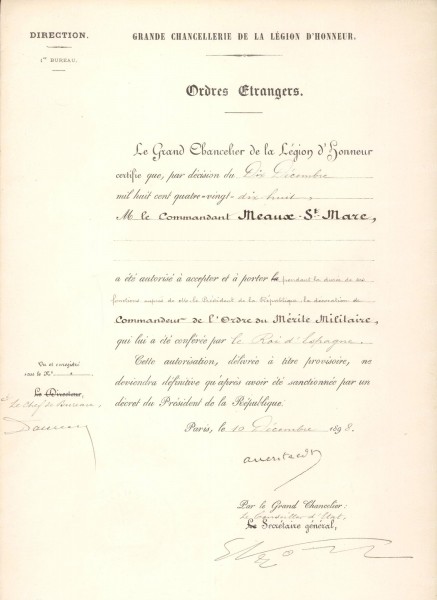 DIRECTION.
1er BUREAU.
GRANDE CHANCELLERIE DE LA LÉGION D'HONNEUR.
Ordres Etrangers.
Le Grand Chancelier de la Légion d'Honneur
certifie que, par décision du Dix Décembre
mil huit cent quatre-vingt-dix huit,
M. le Commandant Meaux-St. Marc,
a été autorisé à accepter et à porter le pendant la durée de ses
fonctions auprès de Mr. le Président de la République, la décoration de
Commandeur de l'Ordre du Mérite Militaire,
qui lui a été conférée par le Roi d'Espagne
Cette autorisation, délivrée à titre provisoire, ne
deviendra définitive qu'après avoir été sanctionnée par un
décret du Président de la République.
Paris, le 10 Décembre 1898.
Vu et enregistré
sous le No
Le Directeur,
Le Chef de Bureau,
Par le Grand Chancelier:
Le Conseiller d'Etat,
Le Secrétaire général,